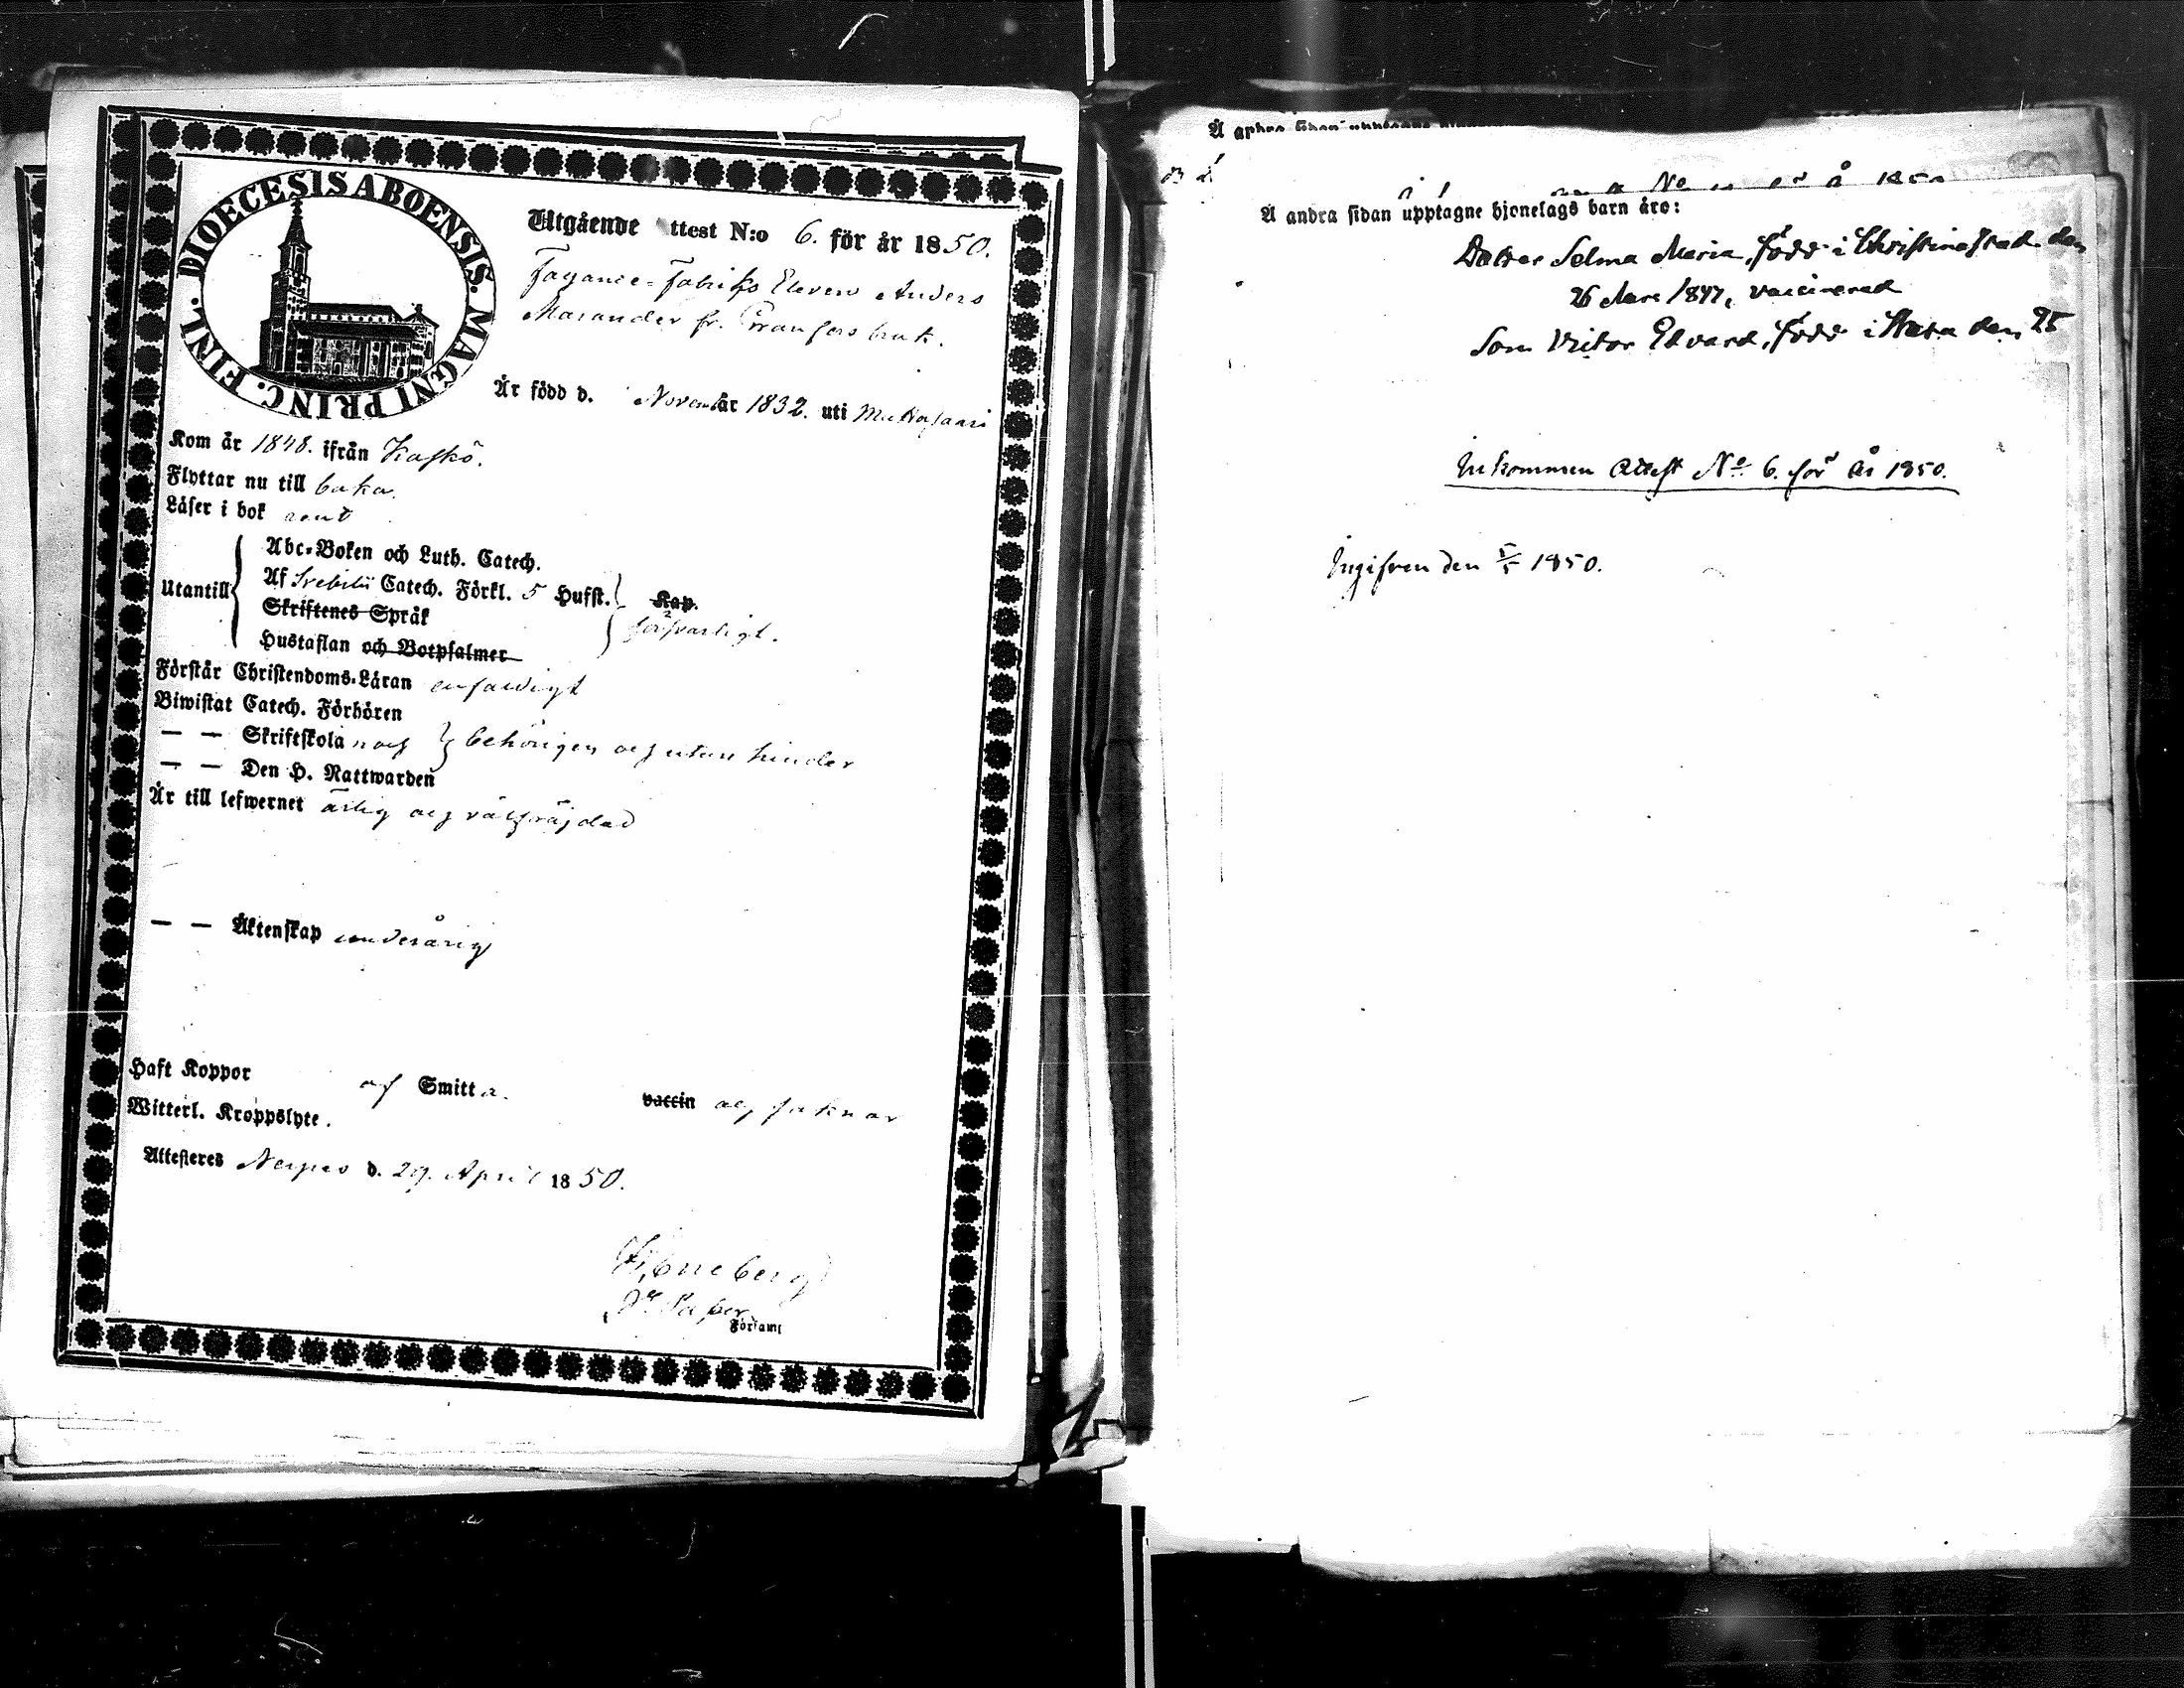 DIOECESIS ABOENSIS. MAGNI PRINC. FINL.
Utgående ttest N:o 6. för år 1850.
Fayance-Fabriks Eleven Anders
Marander fr.
Är född d. Novemb år 1832. uti
Kom år 1848. ifrån Kaskö.
Flyttar nu till baka.
Läser i bok rent
Utantill
Abc-Boken och Luth. Catech.
Af Svebilii Catech. Förkl. 5 Hufst. Kap.
Skriftenes Språk
försvarligt.
Hustaflan och Botpsalmer
Förstår Christendoms-Läran enfaldigt
Biwistat Catech. Förhören
— — Skriftskola n och behörigen och utan hinder
— — Den H. Nattwarden
Är till lefwernet ärlig och välfräjdad
— — Äktenskap underårig
Haft Koppor af Smitta. vaccin och saknar
Witterl. Kroppslyte.
Attesteras Nerpes d. 29. April 1850.
Församl
Å andra sidan
N:o för år 1850
Å andra sidan upptagne hjonelags barn äro:
Dotter Selma Maria, född i Christinestad den
26 Mars 1847, vaccinerad
Son Victor Edvard, född i Wasa den 25
Inkommen Attest No 6. för år 1850.
Ingifven den 5/5 1850.